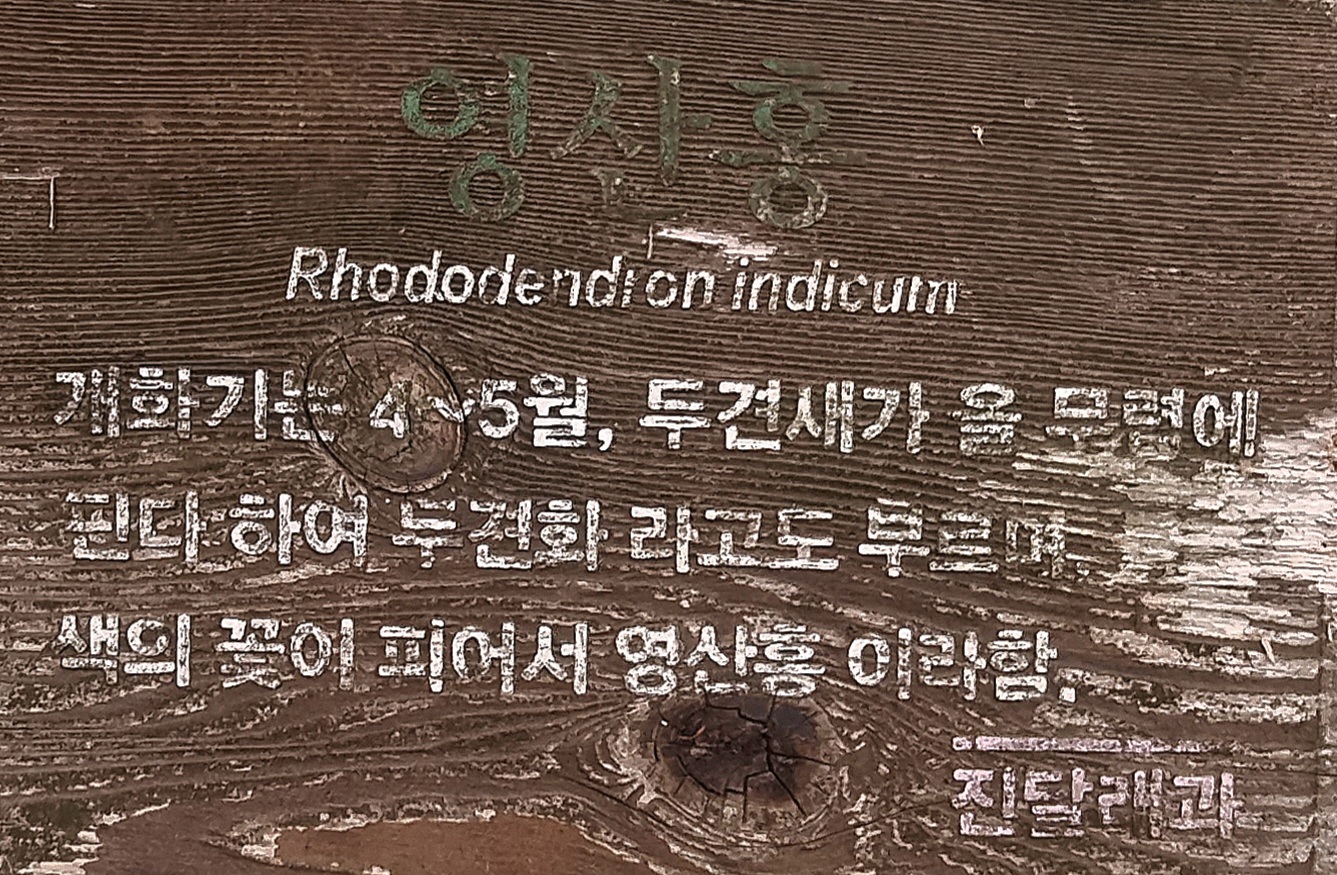 영산홍
Rhododendron indicum
개화기는 4~5월, 두견새가 올 무렵에
핀다 하여 두견화 라고도 부르며,
색의 꽃이 피어서 영산홍 이라함.
진달래과